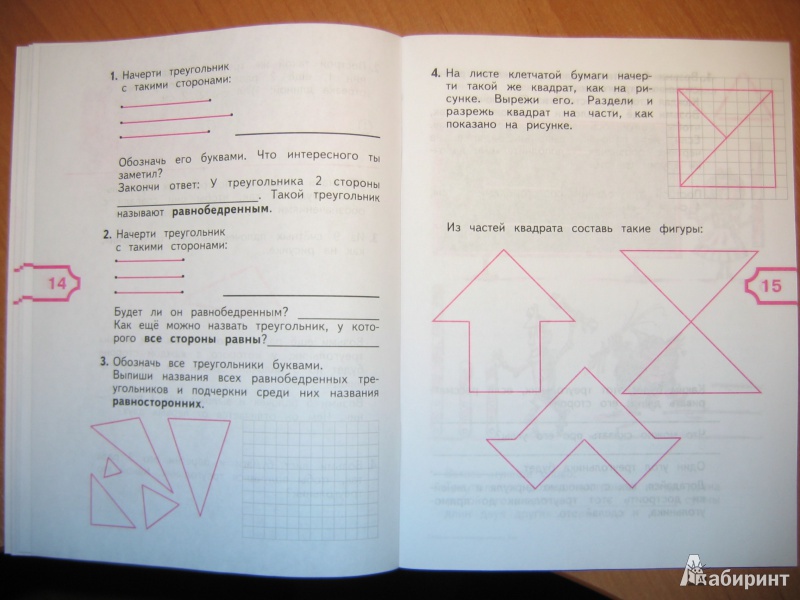 1. Начерти треугольник
с такими сторонами:
Обозначь его буквами. Что интересного ты
заметил?
Закончи ответ: У треугольника 2 стороны
. Такой треугольник
называют равнобедренным.
2. Начерти треугольник
с такими сторонами:
14
Будет ли он равнобедренным?
Как ещё можно назвать треугольник, у кото-
рого все стороны равны?
3. Обозначь все треугольники буквами.
Выпиши названия всех равнобедренных тре-
угольников и подчеркни среди них названия
равносторонних.
4. На листе клетчатой бумаги начер-
ти такой же квадрат, как на ри-
сунке. Вырежи его. Раздели и
разрежь квадрат на части, как
показано на рисунке.
Из частей квадрата составь такие фигуры:
15
Лабиринт